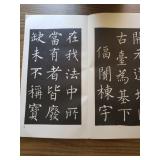 古臺為基下
福闢棟宇
在我法中所
當有者皆廢
缺未不稱寶